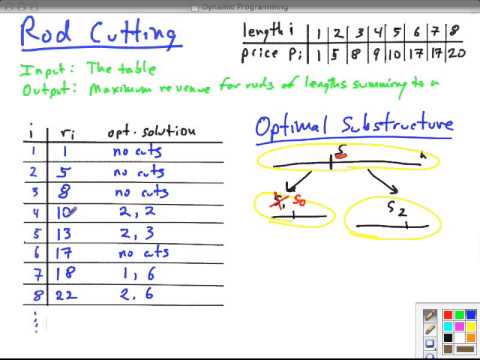 Dynamic Programming
Rod Cutting
length i 1 2 3 4 5 6 7 8
price Pi 1 5 8 9 10 17 17 20
Input: The table
Output: Maximum revenue for rods of lengths summing to n
i ri opt. solution
1 1 no cuts
2 5 no cuts
3 8 no cuts
4 10 2, 2
5 13 2, 3
6 17 no cuts
7 18 1, 6
8 22 2, 6
Optimal Substructure
S n
S0
S2